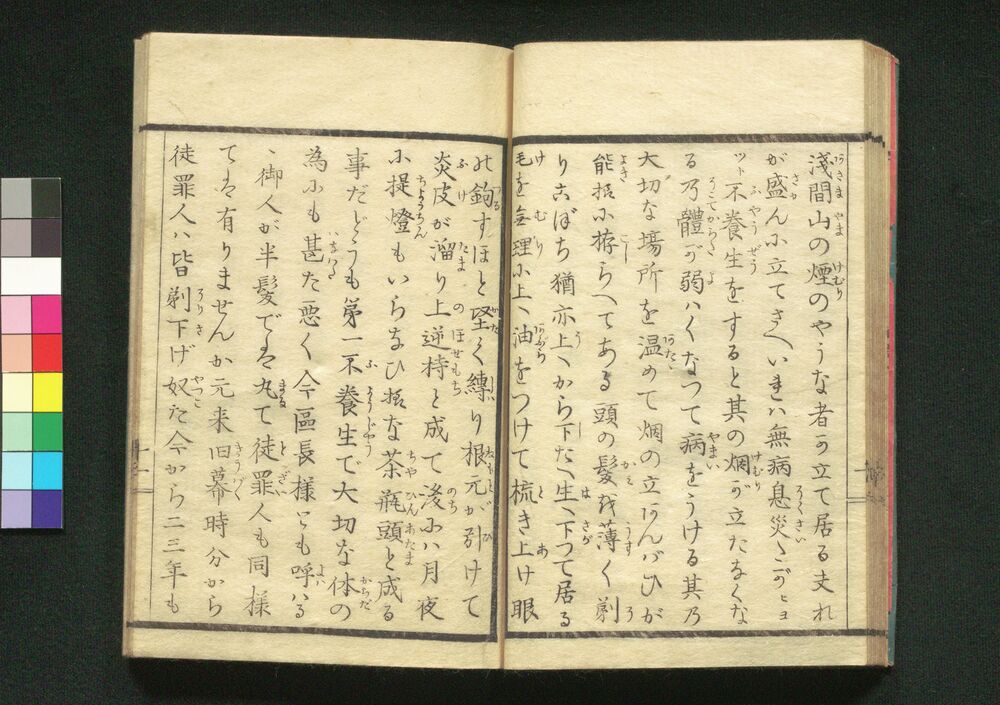 淺間山の煙のやうな者が立て居る夫れ
が盛ん小立てさへいれハ無病息災だがヒヨ
ツト不養生をすると其の烟が立たなくな
る乃體が弱ハくなつて病をうける其乃
大切な場所を温めて烟の立
能 小拵らへてある頭の髮を薄く剃
りこぼち猶亦上から下た 生 下つて居る
毛を無理小上へ油をつけて梳き上け眼
の鉤すほと堅く縛り根元が引けて
炎皮が溜り上逆持と成て後小ハ月夜
小提燈もいらなひ な茶瓶頭と成る
事だどうも第一不養生で大切な体の
為小も甚た悪く今區長様とも呼ハる
、御人が半髮でハ丸て徒罪人も同様
てハ有りませんか元来旧幕時分から
徒罪人ハ皆剃下げ奴た今から二三年も